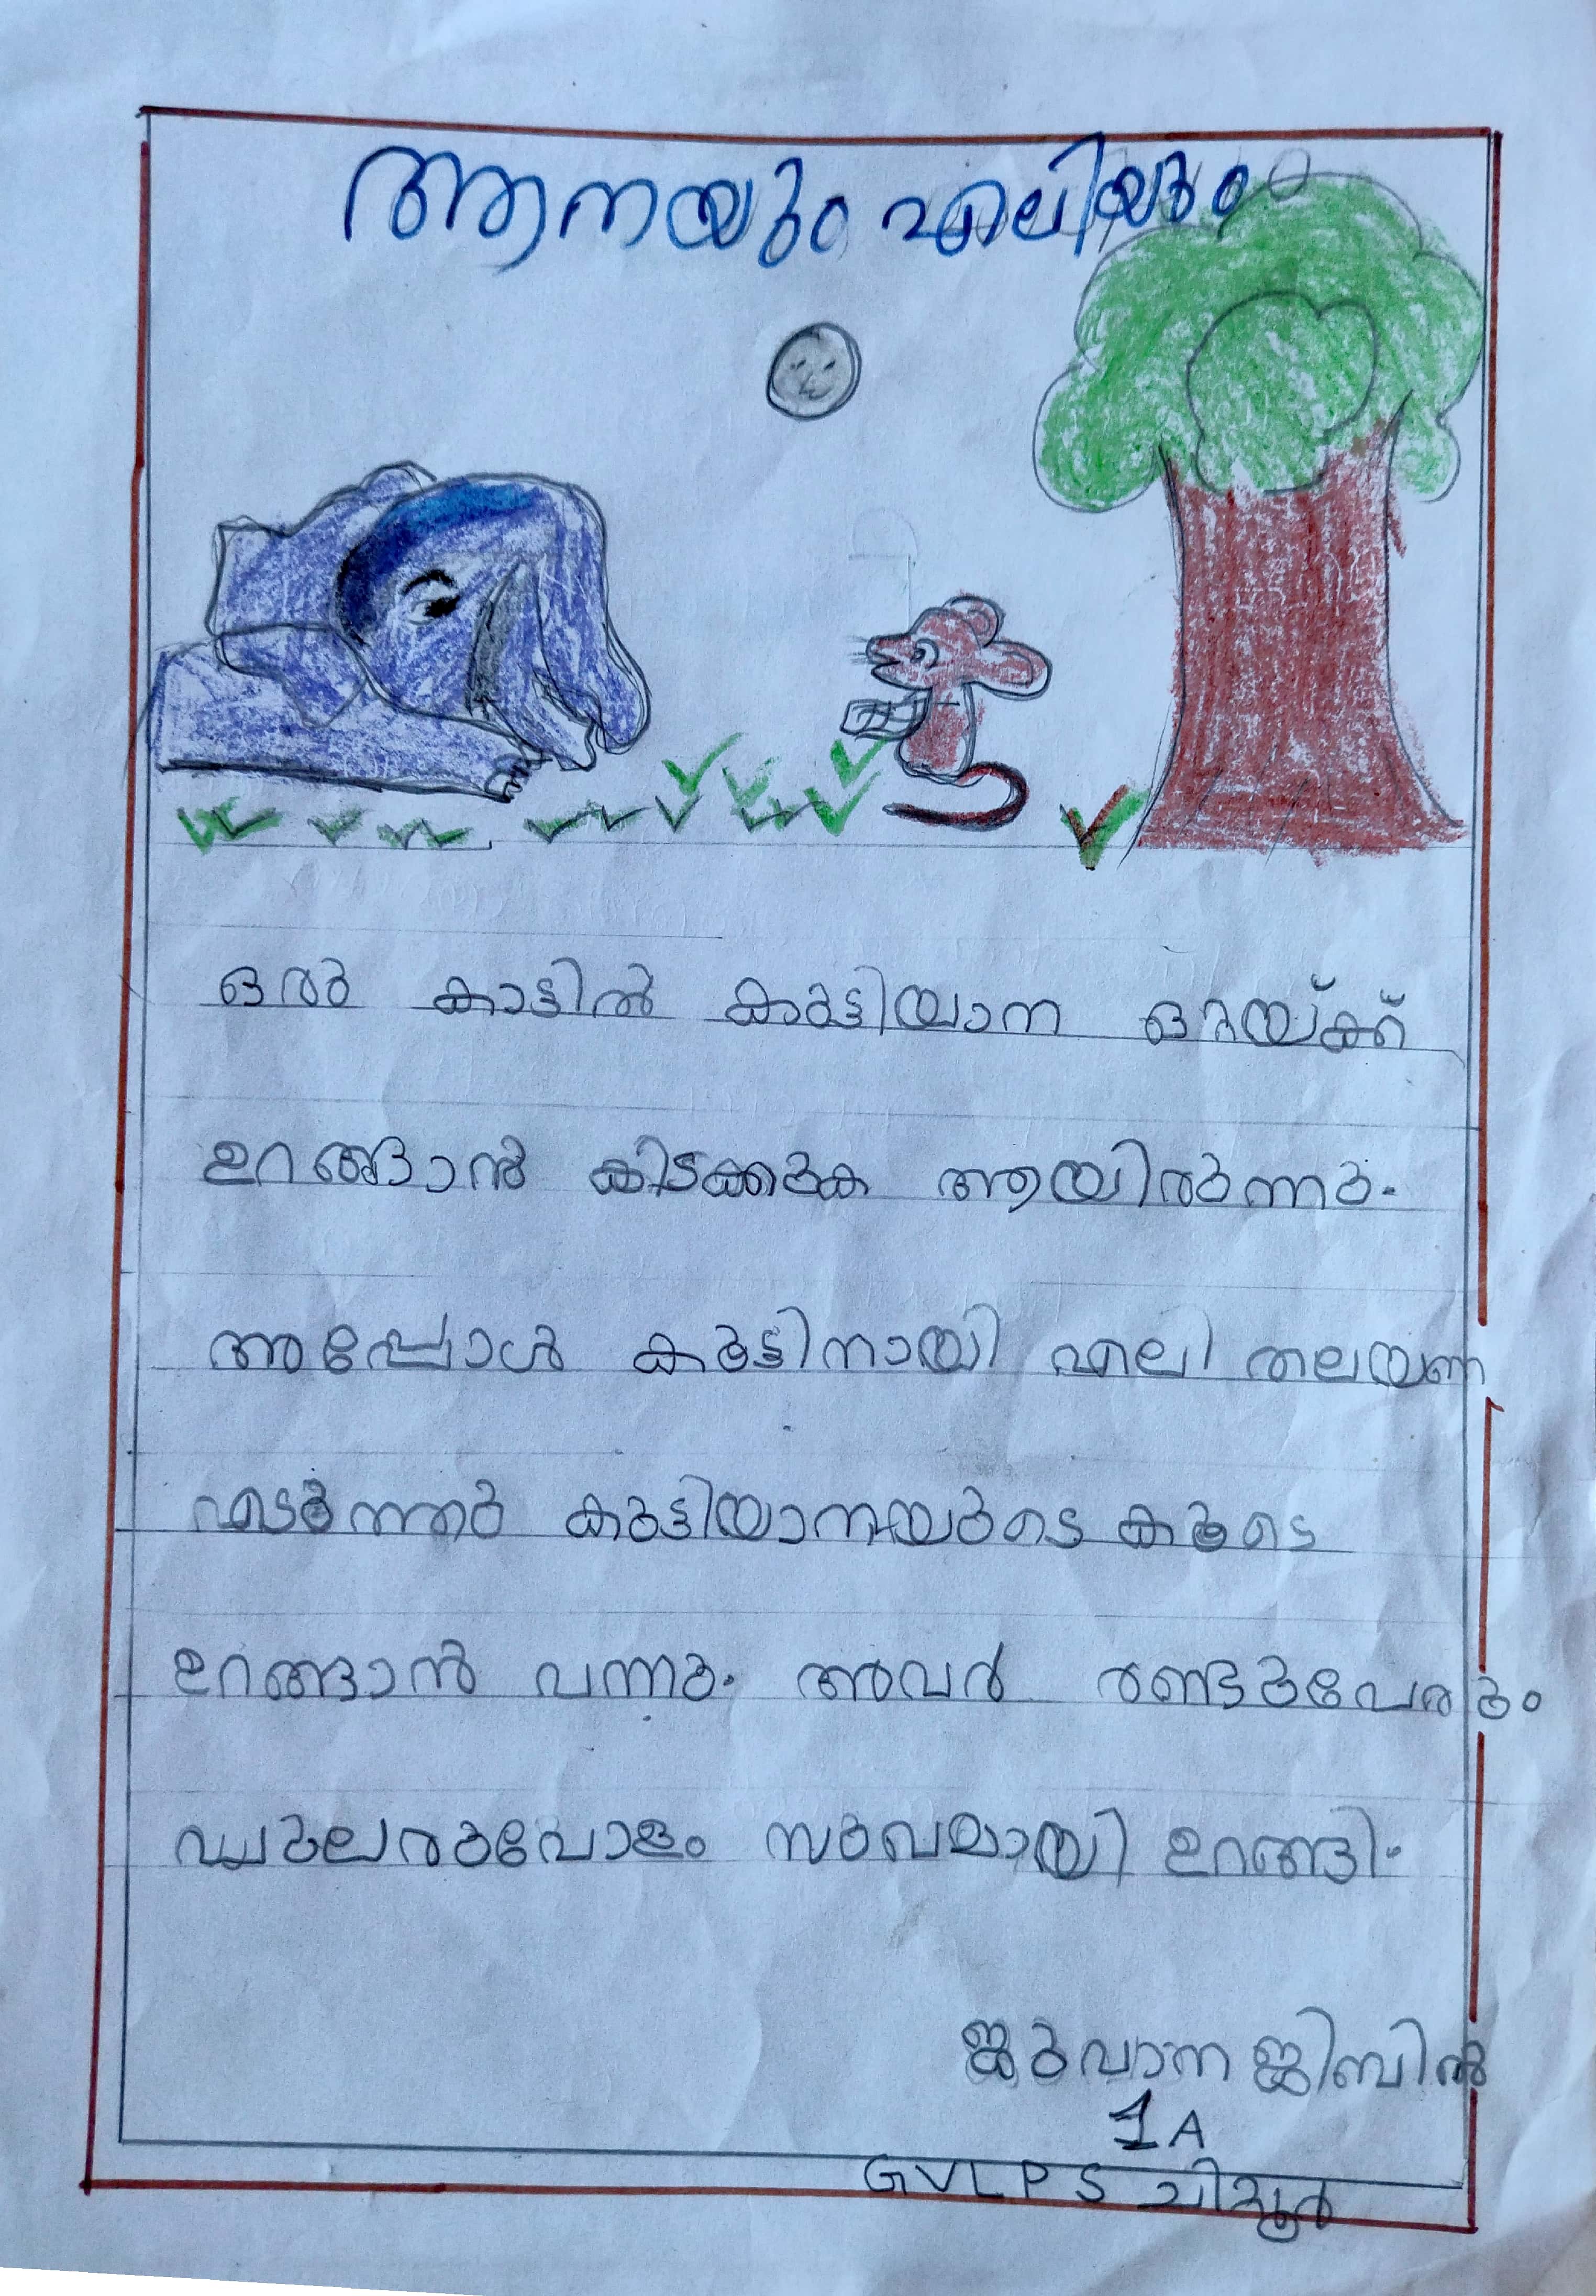 ആനയും എലിയും
ഒരു കാട്ടിൽ കുട്ടിയാന ഒറ്റയ്ക്ക്
ഉറങ്ങാൻ കിടക്കുക ആയിരുന്നു.
അപ്പോൾ കൂട്ടിനായി എലി തലയണ
എടുത്തു കുട്ടിയാനയുടെ കൂടെ
ഉറങ്ങാൻ വന്നു. അവർ രണ്ടുപേരും
പുലരുവോളം സുഖമായി ഉറങ്ങി.
ജുവാന ജിബി�ൽ
1 A
GVLPS ചിറ്റൂർ